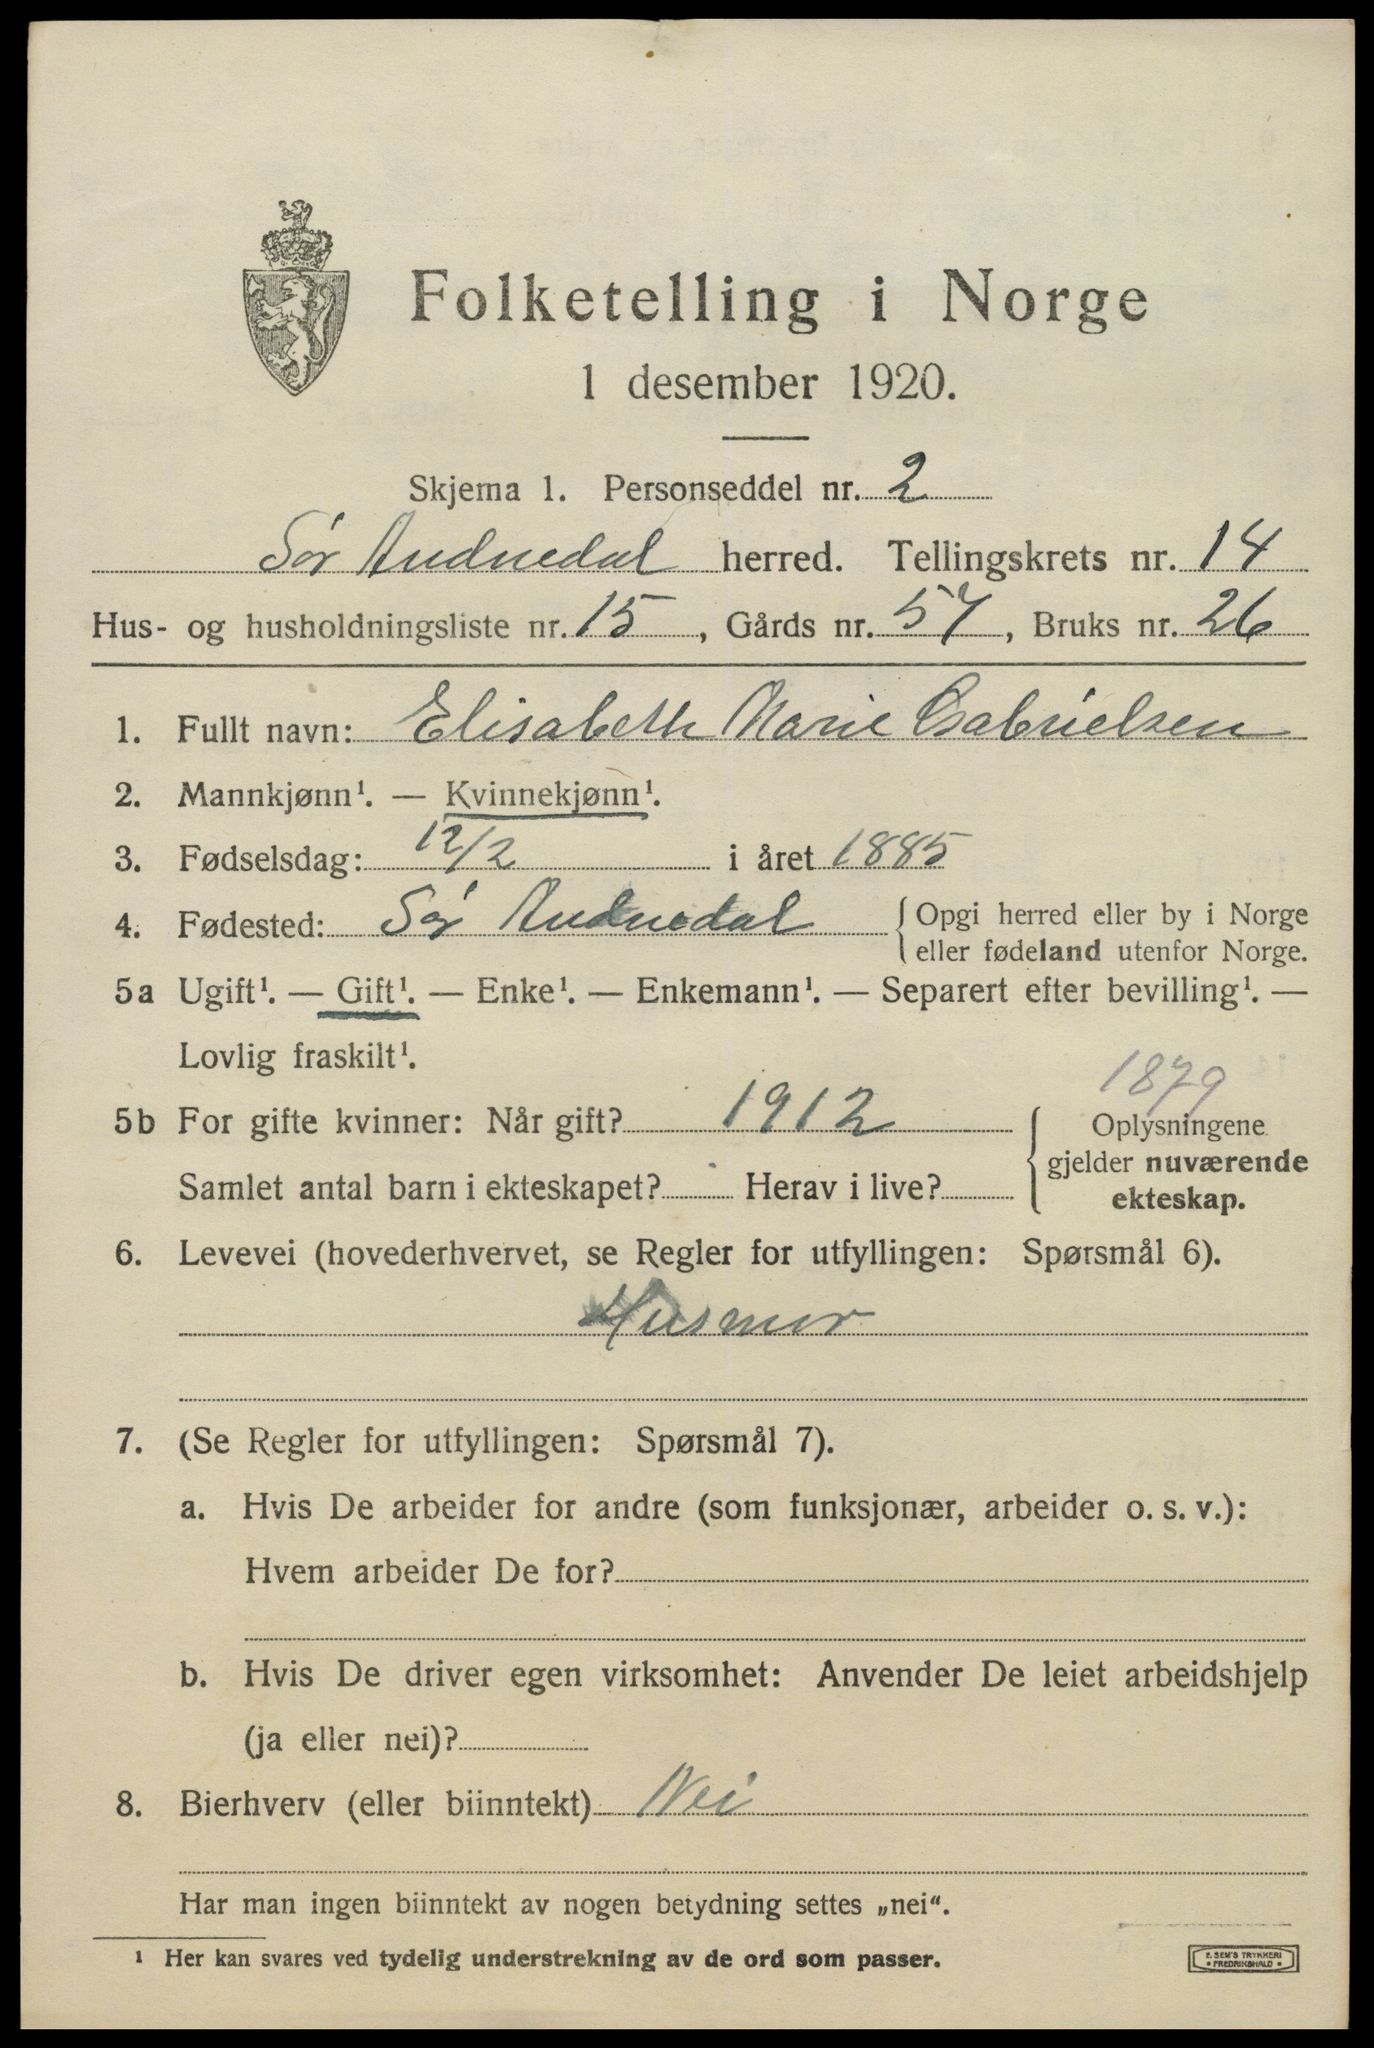 Folketelling i Norge
1 desember 1920.
Skjema 1. Personseddel nr. 2
Sør Audnedal herred. Tellingskrets nr. 14
Hus- og husholdningsliste nr. 15, Gårds nr. 57, Bruks nr. 26
1. Fullt navn: Elisabeth Marie Gabrielsen
2. Mannkjønn¹. — Kvinnekjønn¹.
3. Fødselsdag: 12/2 i året 1885
4. Fødested: Sør Audnedal { Opgi herred eller by i Norge
eller fødeland utenfor Norge.
5a Ugift¹. — Gift¹. — Enke¹. — Enkemann¹. — Separert efter bevilling¹. —
Lovlig fraskilt¹.
1879
5b For gifte kvinner: Når gift? 1912 { Oplysningene
gjelder nuværende
Samlet antal barn i ekteskapet? Herav i live? ekteskap.
6. Levevei (hovederhvervet, se Regler for utfyllingen: Spørsmål 6).
Husmor
7. (Se Regler for utfyllingen: Spørsmål 7).
a. Hvis De arbeider for andre (som funksjonær, arbeider o. s. v.):
Hvem arbeider De for?
b. Hvis De driver egen virksomhet: Anvender De leiet arbeidshjelp
(ja eller nei)?
8. Bierhverv (eller biinntekt) Nei
Har man ingen biinntekt av nogen betydning settes „nei“.
¹ Her kan svares ved tydelig understrekning av de ord som passer.
E. SEM'S TRYKKERI
• FREDRIKSHALD •